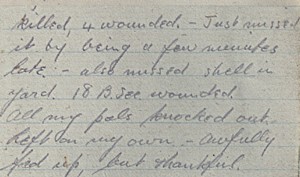 killed, 4 wounded. - Just missed
it by being a few minutes
late - also missed shell in
yard. 18 B.Sec wounded.
All my pals knocked out.
Left on my own - awfully
fed up, but thankful.